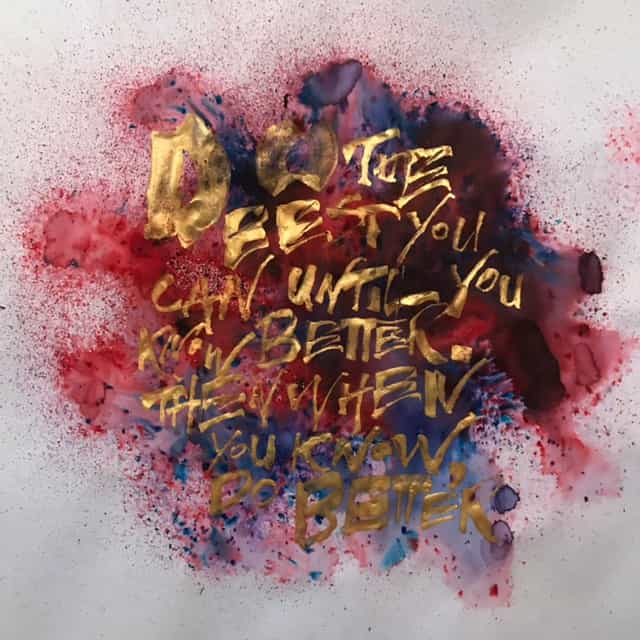 DO THE
BEST YOU
CAN UNTIL YOU
KNOW BETTER.
THEN WHEN
YOU KNOW,
DO BETTER